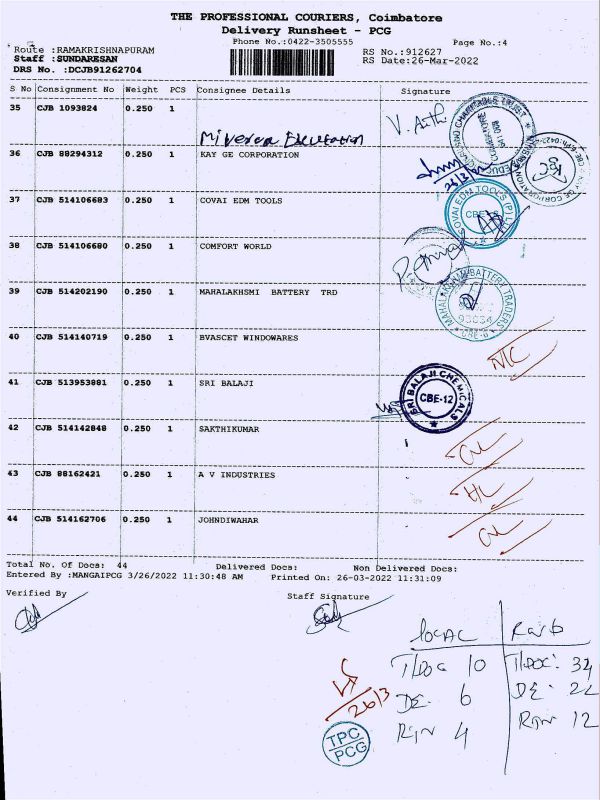 THE PROFESSIONAL COURIERS, Coimbatore
Delivery Runsheet - PCG
Phone No.:0422-3505555 Page No.:4
Route :RAMAKRISHNAPURAM RS No.:912627
Staff :SUNDARESAN RS Date:26-Mar-2022
DRS No. :DCJB91262704
S No Consignment No Weight PCS Consignee Details Signature
35 CJB 1093824 0.250 1
36 CJB 88294312 0.250 1 KAY GE CORPORATION
37 CJB 514106683 0.250 1 COVAI EDM TOOLS
COVAI EDM TOOLS (P) L
38 CJB 514106680 0.250 1 COMFORT WORLD
39 CJB 514202190 0.250 1 MAHALAKHSMI BATTERY TRD
40 CJB 514140719 0.250 1 BVASCET WINDOWARES
41 CJB 513953881 0.250 1 SRI BALAJI
SRI BALAJI CHEMICALS
CBE-12
42 CJB 514142848 0.250 1 SAKTHIKUMAR
43 CJB 88162421 0.250 1 A V INDUSTRIES
44 CJB 514162706 0.250 1 JOHNDIWAHAR
Total No. Of Docs: 44 Delivered Docs: Non Delivered Docs:
Entered By :MANGAIPCG 3/26/2022 11:30:48 AM Printed On: 26-03-2022 11:31:09
Verified By Staff Signature
LOCAL
T/DOC 10 T/DOC: 34
DE. 6 DE. 22
RTN 4 RTN 12
26/3
TPC
PCG